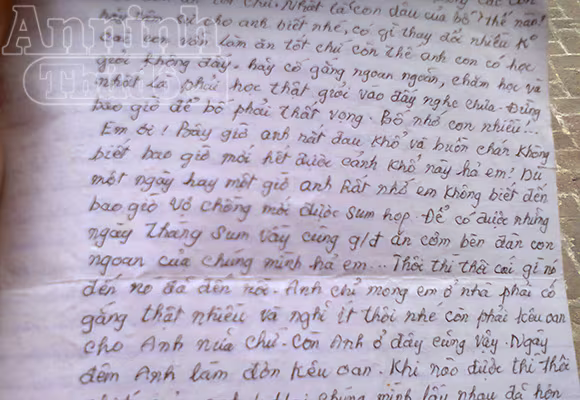 An ninh
Thủ đô
chứ. Nhất là con dâu của bố thế nào?
cho anh biết nhé, có gì thay đổi nhiều ko
con vốn làm ăn tốt chứ còn thế anh con có học
giỏi không đấy. hãy cố gắng ngoan ngoãn, chăm học và
nhất là phải học thật giỏi vào đấy nghe chưa. Đừng
bao giờ để bố phải thất vọng. Bố nhớ con nhiều...
Em ơi! Bây giờ anh rất đau khổ và buồn chán không
biết bao giờ mới hết được cảnh khổ này hả em! Dù
một ngày hay một giờ anh Rất nhớ em không biết đến
bao giờ Vợ chồng mới được sum họp. Để có được những
ngày tháng sum vầy cùng g/đ ăn cơm bên đàn con
ngoan của chúng mình hả em... Thôi thì thôi cái gì nó
đến nó đã đến rồi. Anh chỉ mong em ở nhà phải cố
gắng thật nhiều và nghỉ ít thôi nhé còn phải kêu oan
cho Anh nữa chứ. Còn Anh ở đây cũng vậy. Ngày
đêm Anh làm đơn kêu oan. Khi nào được thì thôi
chúng mình lấy nhau đã hơn